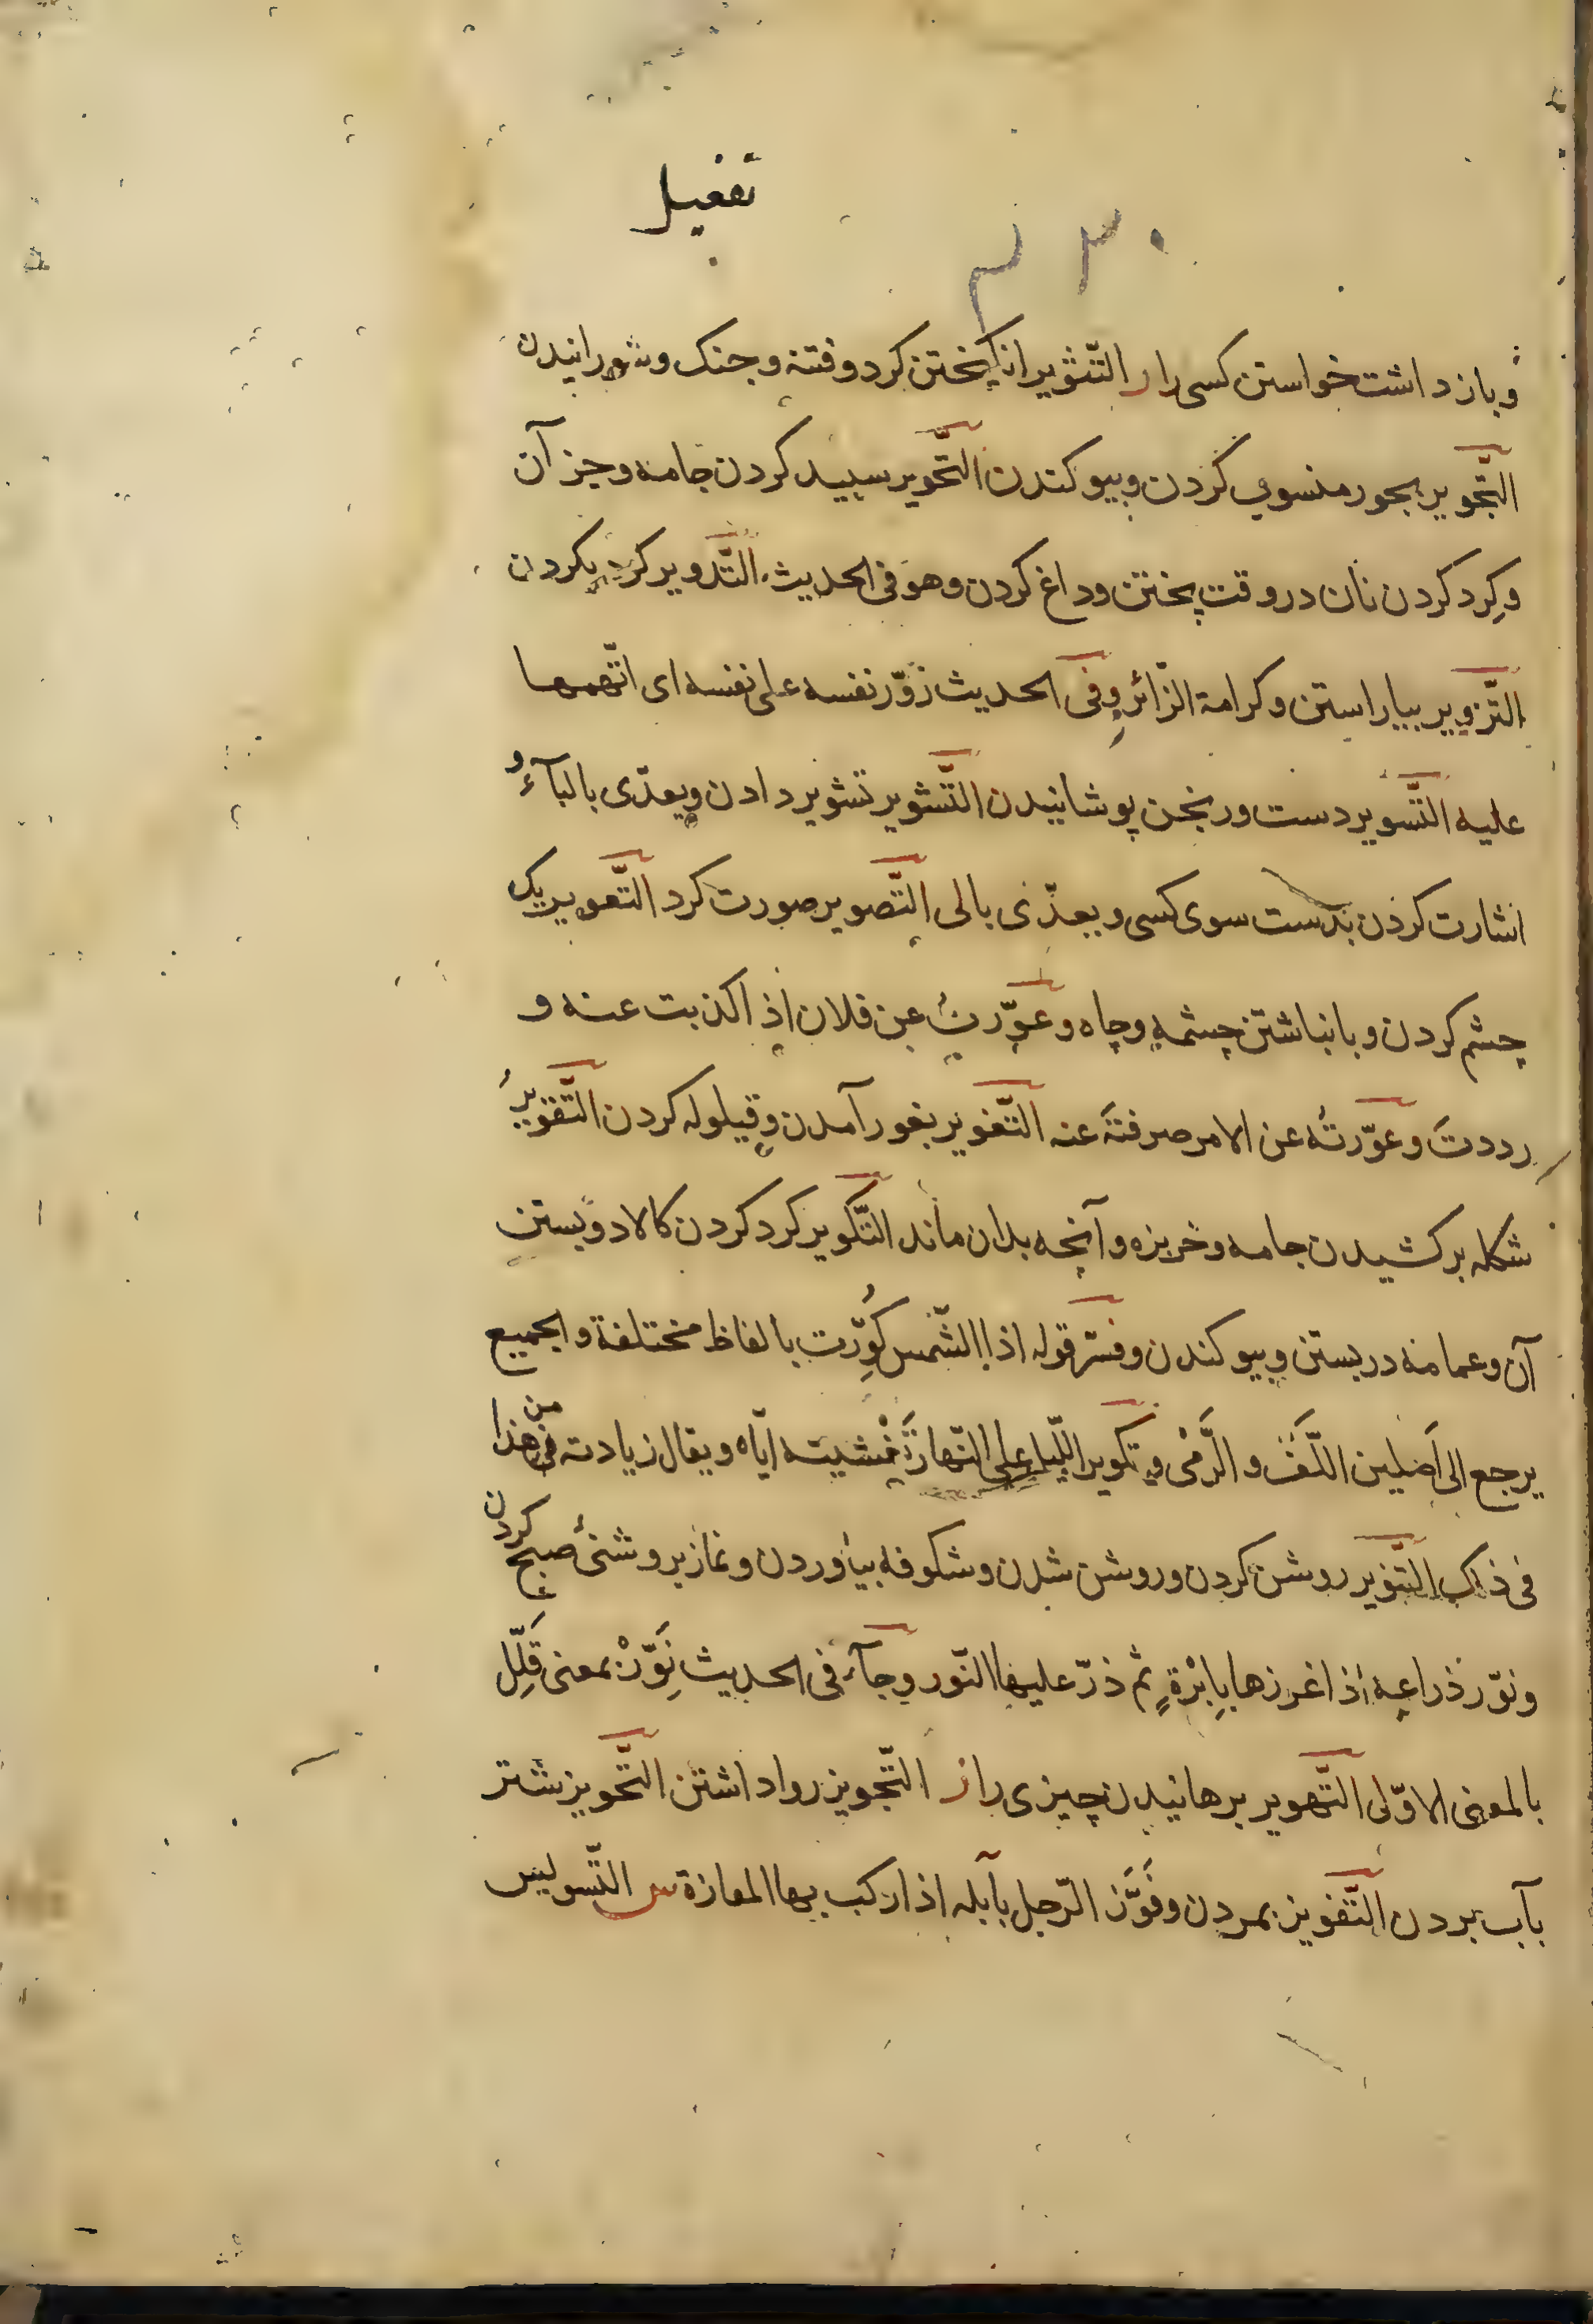 تفعیل
وبازداشت خواستن کسی را ر التّثویر انکیختن کرد وفتنه وجنک وشورانیدن
التّجویر بجور منسوب کردن وبیوکندن التّحویر سپید کردن جامه وجز آن
وکِرد کردن نان در وقت پختن وداغ کردن وهو فی الحدیث التّدویر کرد بکردن
التّزویر بیاراستن وکرامة الزّائر وفی الحدیث زوّر نفسه علی نفسه ای اتّهمها
علیه التّسویر دست ورنجن پوشانیدن التّشویر تشویر دادن ویعدّی بالبآء و
اشارت کردن بدست سوی کسی ویعدّی بالی التّصویر صورت کرد التّعویر یک
چشم کردن وبانباشتن چشمه وچاه وعوّرتُ عن فلان اذا کذبت عنه و
رددتَ وعوّرتُه عن الامر صرفتَه عنه التّغویر بغور آمدن وقیلوله کردن التّقویرُ
شکله برکشیدن جامه وخربزه وآنچه بدان ماند التّکویر کرد کردن کالا دوبستن
آن وعمامه دربستن وبیوکندن وفسّر قوله اذا الشّمس کُوِّرت بالفاظ مختلفة والجمیع
یرجع الی اَصلین اللَّف والرَّمْی وتکویر اللّیل علی النّهار تَغْشیته ایّاه ویقال زیادته من هذا
فی ذلک التّنویر روشن کردن وروشن شدن وشکوفه بیاوردن ونماز بروشنیٔ صبح کردن
ونوّر ذراعه اذا غرزها باِبْرةٍ ثم ذرّ علیها النّور وجآء فی الحدیث نَوِّرْ بمعنی قَلِّل
بالمعنی الاوّل التّهویر برهانیدن چیزی را ز التّجویز روا داشتن التّحویز شتر
بآب بردن التّفویز بمردن وفَوَّزَ الرّجل بآبله اذا رکب بها المفازة س التّسویس